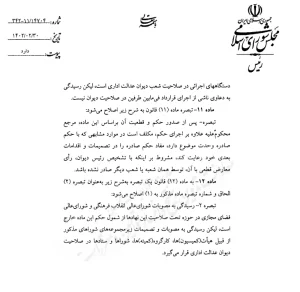 جمهوری اسلامی ایران
مجلس شورای اسلامی
رئیس
شماره: ۳۴۲۰۱۱/۱۴۷۰۴
تاریخ: ۱۴۰۲/۰۲/۳۰
پیوست: دارد
دستگاههای اجرائی در صلاحیت شعب دیوان عدالت اداری است، لیکن رسیدگی
به دعاوی ناشی از اجرای قرارداد فی‌مابین طرفین در صلاحیت دیوان نیست.
ماده ۱۱- تبصره ماده (۱۱) قانون به شرح زیر اصلاح می‌شود:
تبصره- پس از صدور حکم و قطعیت آن براساس این ماده، مرجع
محکوم‌علیه علاوه بر اجرای حکم، مکلف است در موارد مشابهی که با حکم
صادره وحدت موضوع دارد، مفاد حکم صادره را در تصمیمات و اقدامات
بعدی خود رعایت کند، مشروط بر اینکه با تشخیص رئیس دیوان، رأی
معارض قطعی با آن، توسط همان شعبه یا شعب دیگر صادر نشده باشد.
ماده ۱۲- به ماده (۱۲) قانون یک تبصره به‌شرح زیر به‌عنوان تبصره (۲)
الحاق و شماره تبصره ماده مذکور به (۱) اصلاح می‌شود:
تبصره ۲- رسیدگی به مصوبات شورای‌عالی انقلاب فرهنگی و شورای‌عالی
فضای مجازی در حوزه تحت صلاحیت این نهادها از شمول حکم این ماده خارج
است، لیکن رسیدگی به مصوبات و تصمیمات زیرمجموعه‌های شوراهای مذکور
از قبیل هیأت‌(کمیسیون)ها، کارگروه(کمیته)ها، شوراها و ستادها در صلاحیت
دیوان عدالت اداری قرار می‌گیرد.